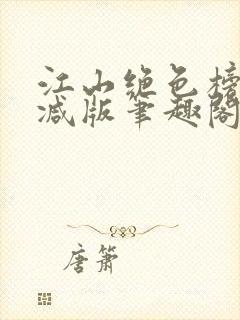 江山绝色榜
减版笔趣阁
唐箫